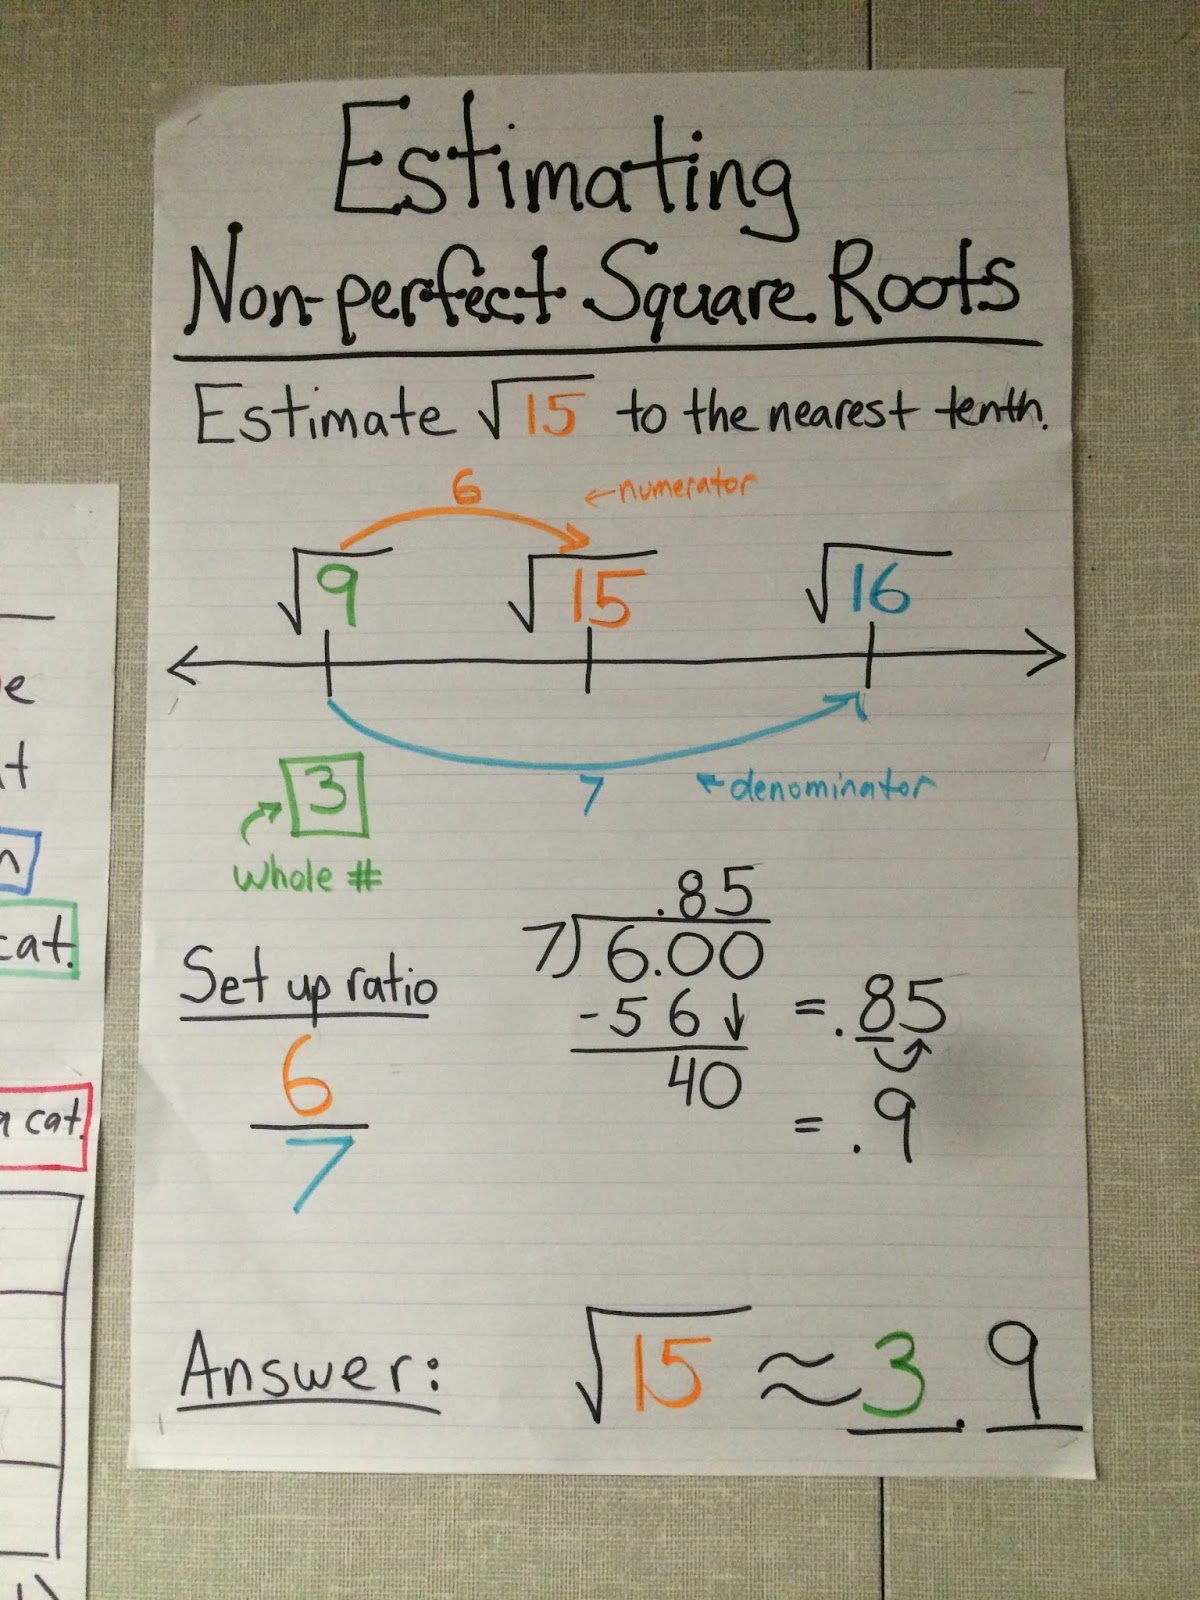 Estimating
Non-perfect Square Roots
Estimate √15 to the nearest tenth.
6 ←numerator
√9 √15 √16
7 ←denominator
3
Whole #
.85
7)6.00
-56↓
40
= .85
= .9
Set up ratio
6
7
Answer: √15 ≈ 3.9
cat.
a cat.